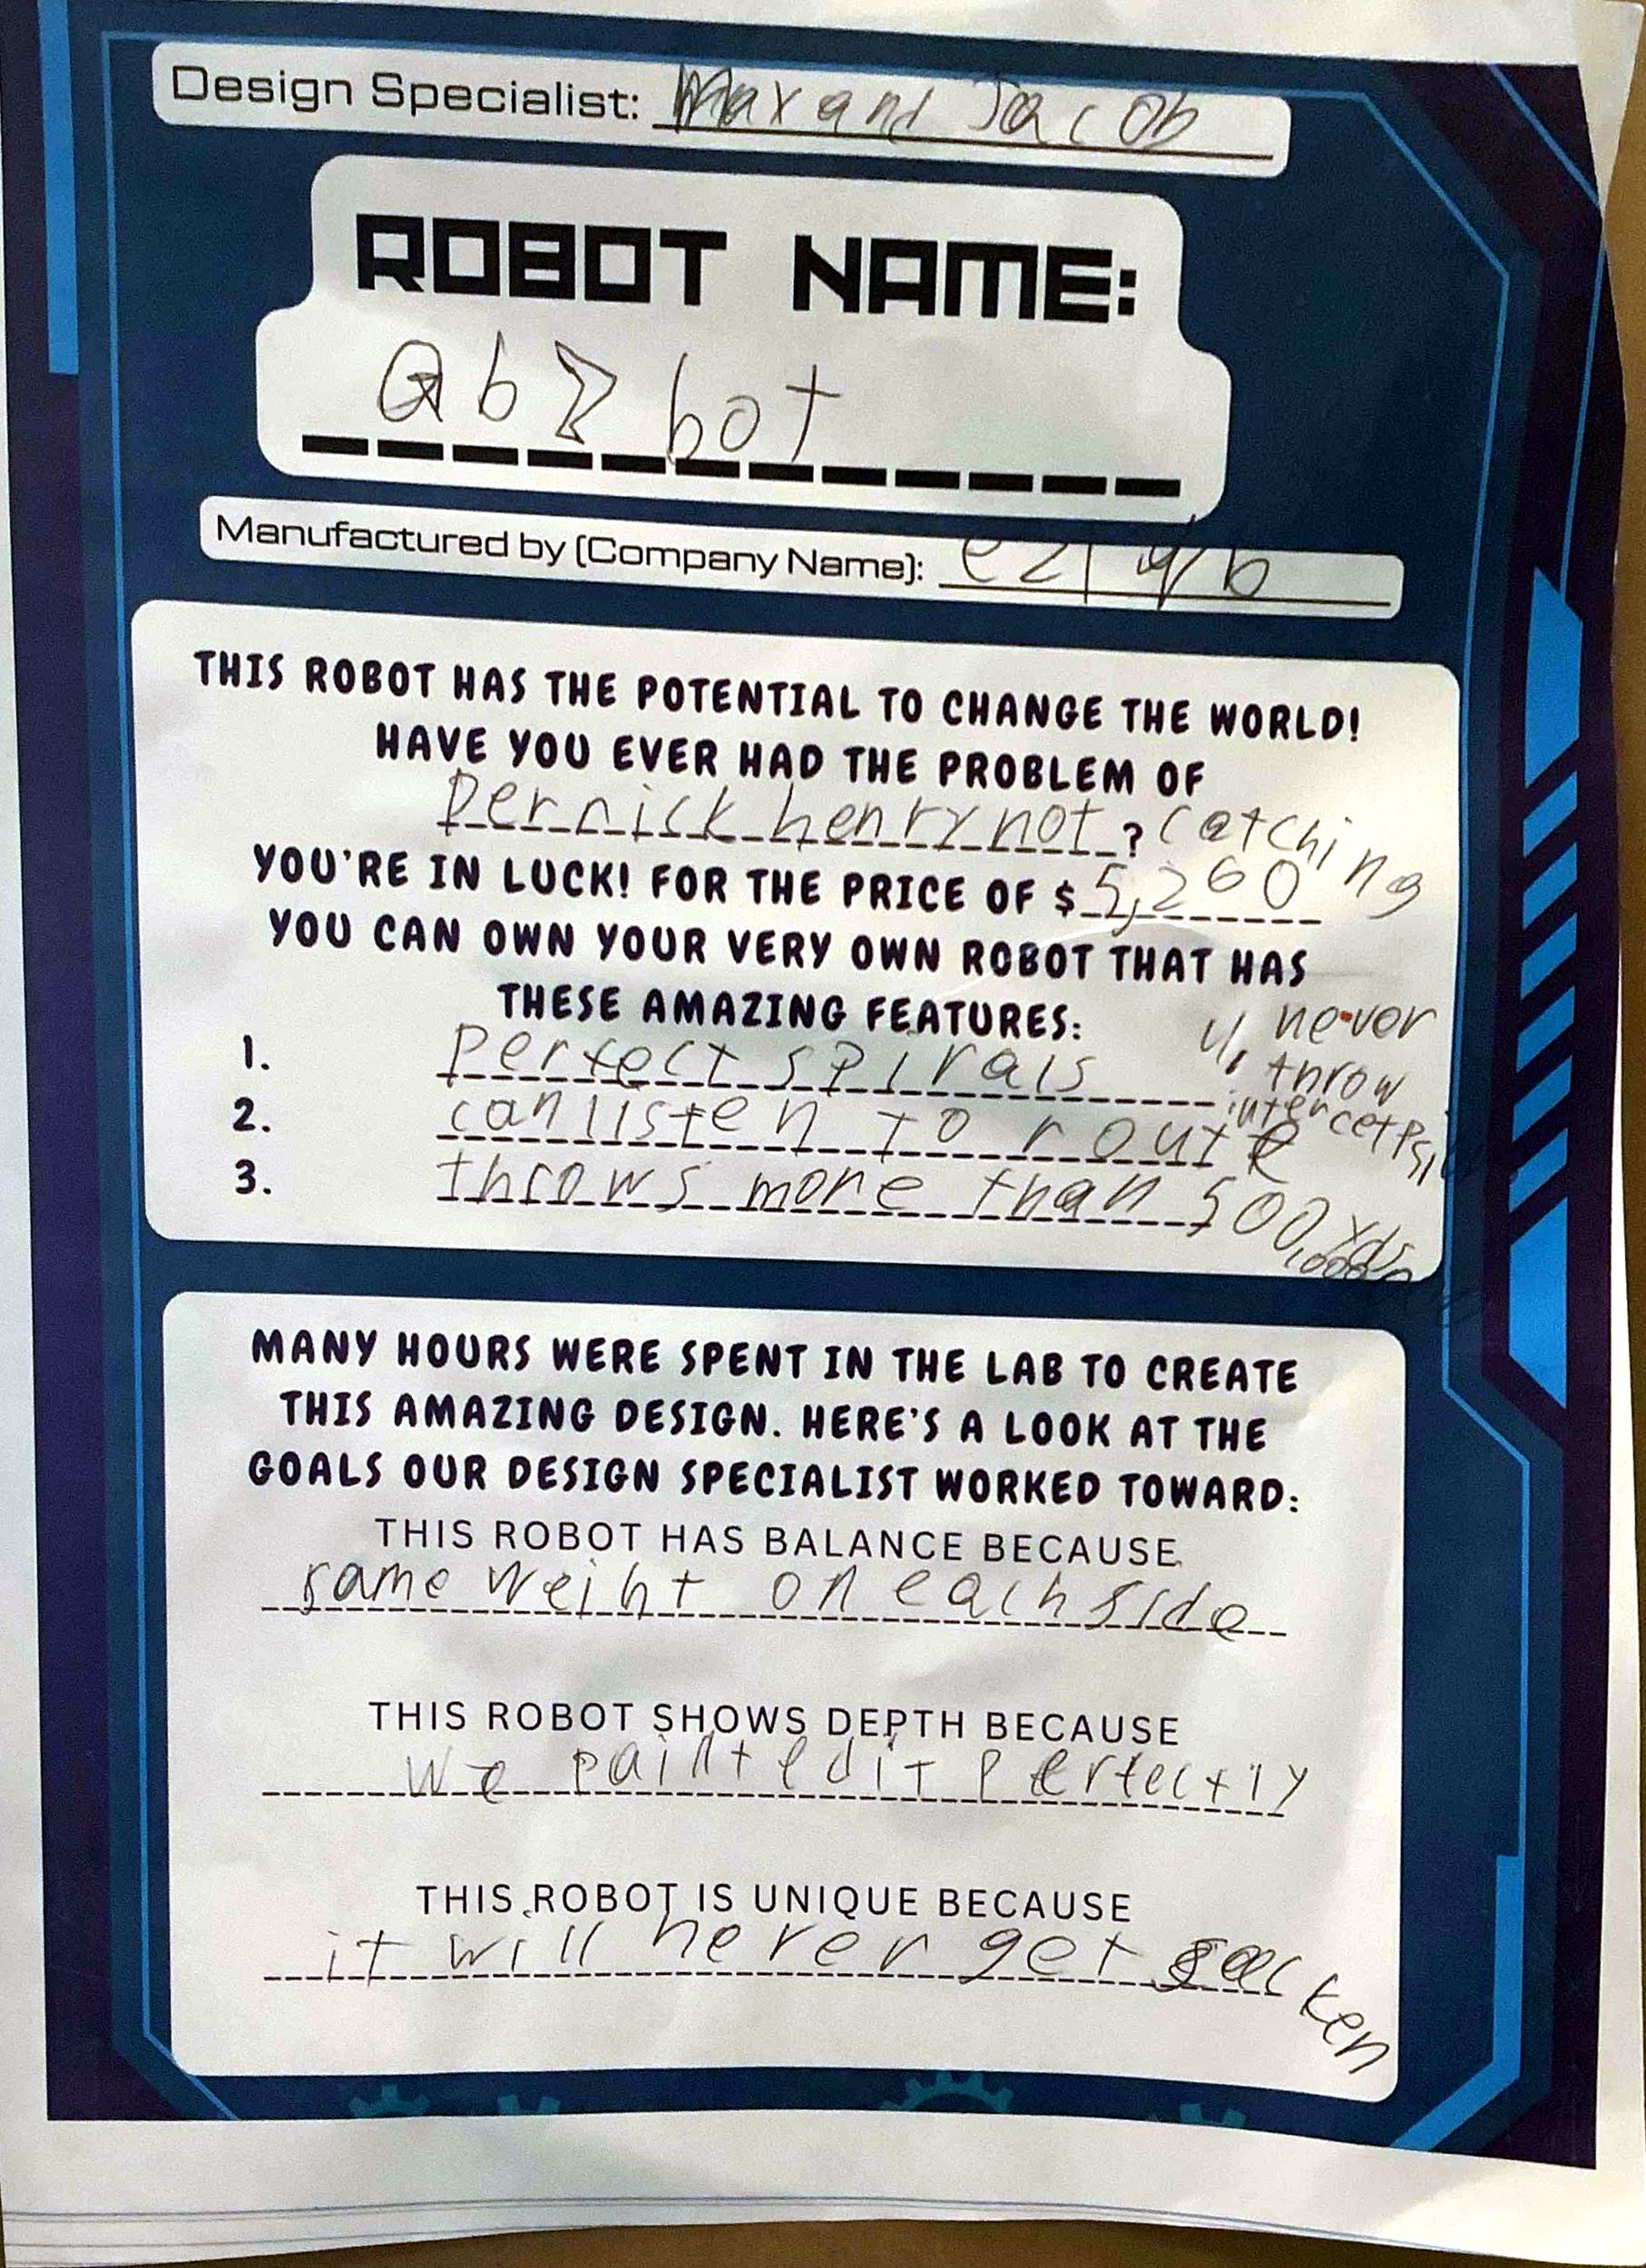 Design Specialist: Max and Jacob
ROBOT NAME:
Qb bot
Manufactured by (Company Name):
THIS ROBOT HAS THE POTENTIAL TO CHANGE THE WORLD!
HAVE YOU EVER HAD THE PROBLEM OF
Derrick henry not ? catching
YOU'RE IN LUCK! FOR THE PRICE OF $ 5,260
YOU CAN OWN YOUR VERY OWN ROBOT THAT HAS
THESE AMAZING FEATURES:
1. perfect spirals
2. can listen to route
3. throws more than 500,000 yds
4. never
throw
MANY HOURS WERE SPENT IN THE LAB TO CREATE
THIS AMAZING DESIGN. HERE'S A LOOK AT THE
GOALS OUR DESIGN SPECIALIST WORKED TOWARD:
THIS ROBOT HAS BALANCE BECAUSE
same weiht on each side
THIS ROBOT SHOWS DEPTH BECAUSE
we painted it perfectly
THIS ROBOT IS UNIQUE BECAUSE
it will never get sacken